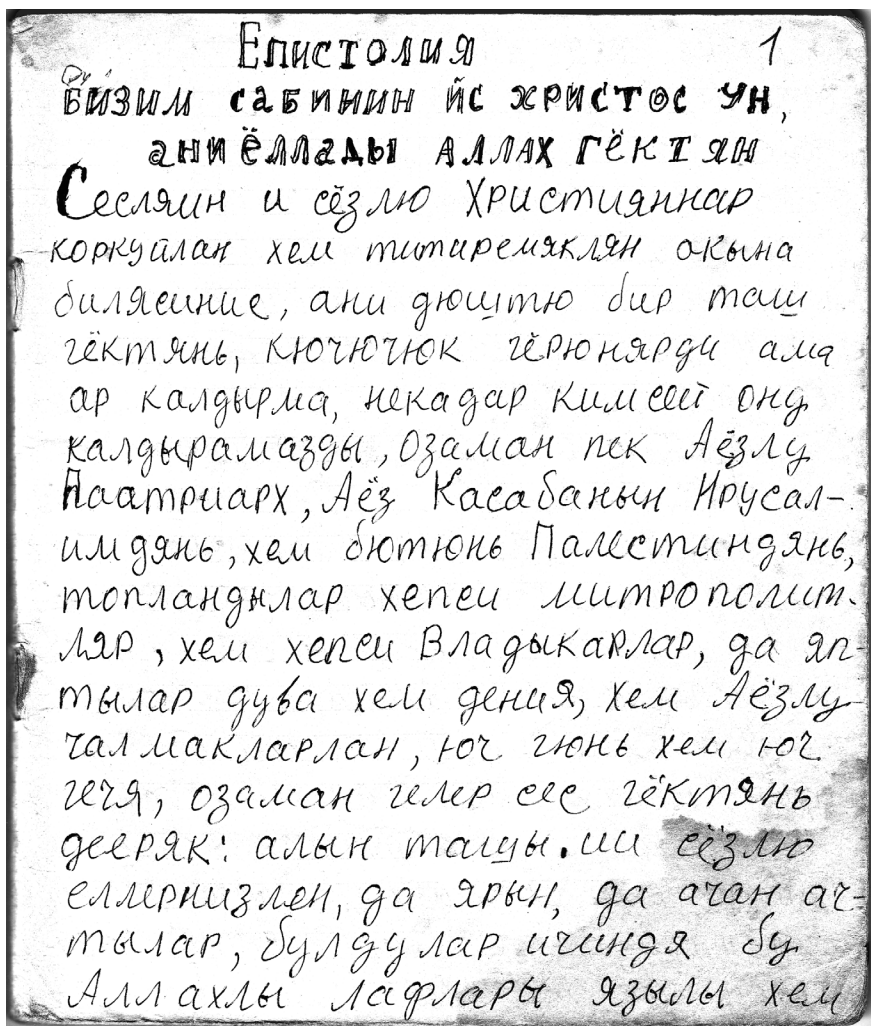 Епистолия 1
Бизим сабинин ис христос ун,
ани ёллады аллах гёктян
Сесляин и сёзлю Християннар
коркуйлан хем титиремяклян окына
билясиние, ани дюштю бир таш
гёктянь, кючючюк гёрюнярди ама
ар калдырма, некадар кимсей ону
калдырамазды, озаман пек Аёзлу
Паатриарх, Аёз Касабанын Ирусал-
имдянь, хем бютюнь Палестиндянь,
топландылар хепси митрополит-
ляр, хем хепси Владыкарлар, да яп-
тылар дува хем дения, хем Аёзлу
чалмакларлан, юч гюнь хем юч
гечя, озаман гелер сес гёктянь
дееряк: алын ташы. ии сёзлю
еллернизлен, да ярын, да ачан ач-
тылар, булдулар ичиндя бу
Аллахлы лафлары язылы хем